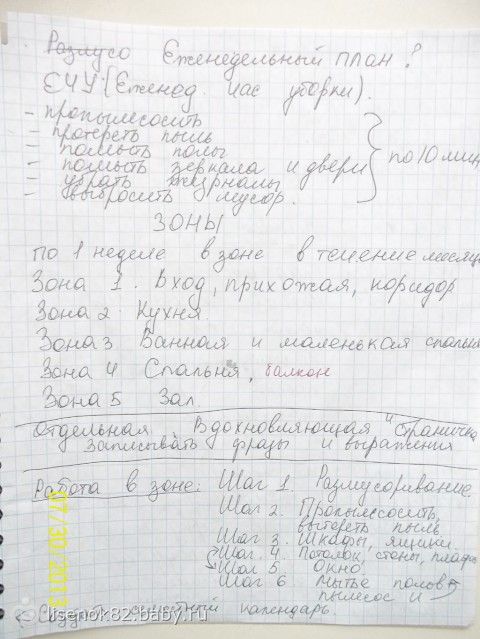 Размусо Еженедельный план?
ЕЧУ [Еженед. час уборки).
- пропылесосить
- протереть пыль
- помыть полы
- помыть зеркала и двери
- убрать журналы
- выбросить мусор.
по 10 мин
ЗОНЫ
по 1 неделе в зоне в течение месяца
Зона 1. Вход, прихожая, коридор
Зона 2 Кухня
Зона 3 Ванная и маленькая спальня
Зона 4 Спальня, балкон
Зона 5 Зал.
Отдельная Вдохновляющая "Страничка
Записывать фразы и выражения
Работа в зоне: Шаг 1. Размусоривание
Шаг 2. Пропылесосить,
вытереть пыль
Шаг 3. Шкафы, ящики.
Шаг 4. Потолок, стены,
Шаг 5. Окно
Шаг 6 Мытье полов
пылесос и
календарь.
07/30/2013
lisenok82.baby.ru